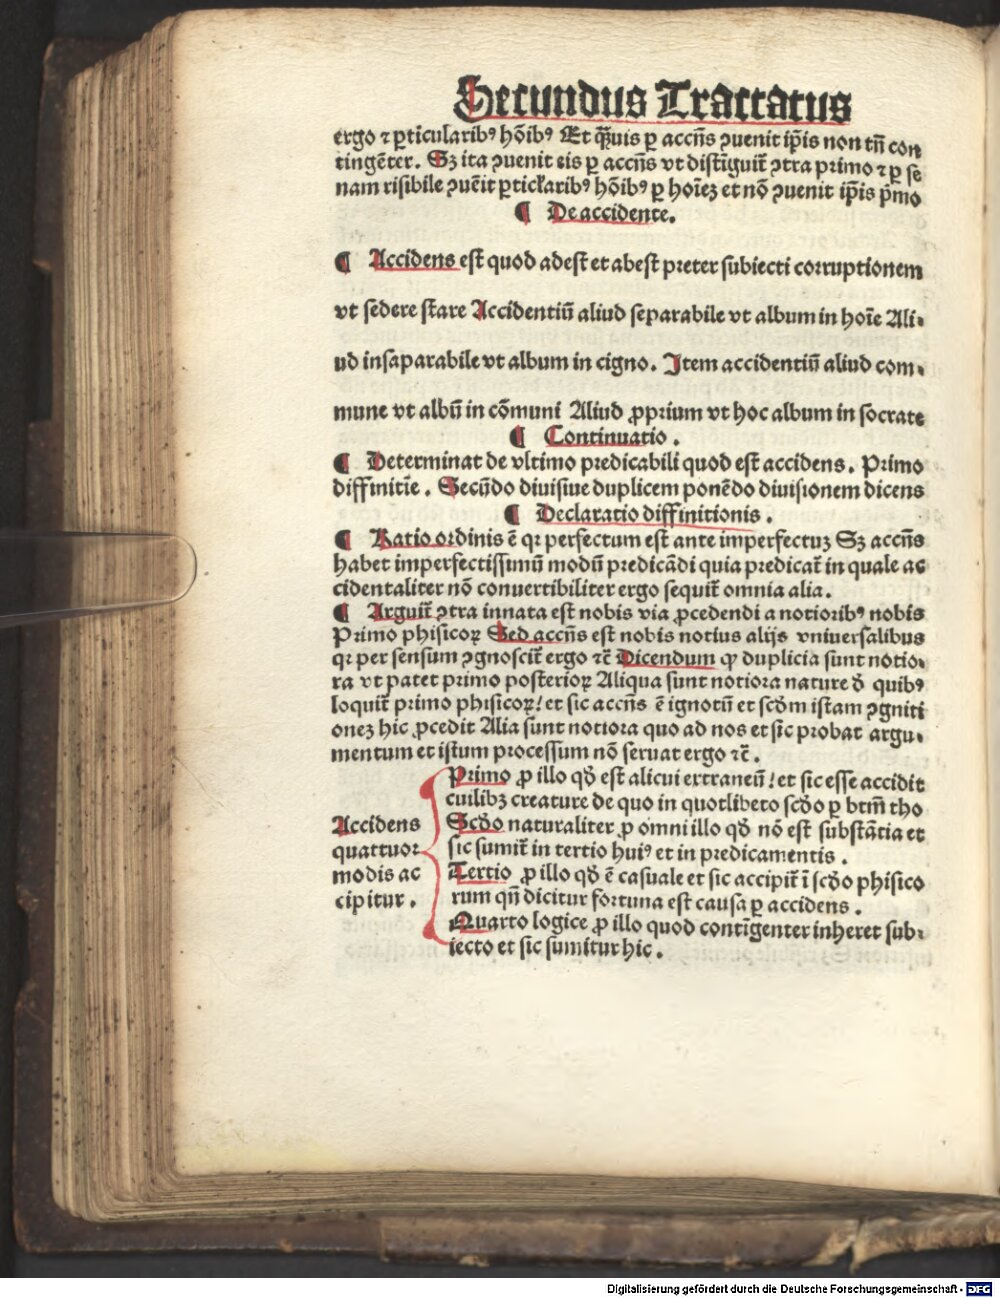 Secundus Tractatus
ergo ⁊ ꝑticularibꝰ hōibꝰ Et qͣuis ꝑ accn̄s ꝯuenit ip̄is non tn̄ con
tingēter. Sꝫ ita ꝯuenit eis ꝑ accn̄s vt distīguit̄ ꝯtra primo ⁊ ꝑ se
nam risibile ꝯuēit ꝑticl̄aribꝰ hōibꝰ ꝑ hoīeꝫ et nō ꝯuenit ip̄is p̄mo
¶ De accidente.
¶ Accidens est quod adest et abest preter subiecti corruptionem
vt sedere stare Accidentiū aliud separabile vt album in hoīe Ali⸗
ud insaparabile vt album in cigno. Item accidentiū aliud com⸗
mune vt albū in cōmuni Aliud ꝓprium vt hoc album in socrate
¶ Continuatio.
¶ Determinat de vltimo predicabili quod est accidens. Primo
diffinitīe. Secūdo diuisiue duplicem ponēdo diuisionem dicens
¶ Declaratio diffinitionis.
¶ Ratio ordinis ē qꝛ perfectum est ante imperfectuꝫ Sꝫ accn̄s
habet imperfectissimū modū predicādi quia predicat̄ in quale ac
cidentaliter nō conuertibiliter ergo sequit̄ omnia alia.
¶ Arguit̄ ꝯtra innata est nobis via ꝓcedendi a notioribꝰ nobis
Primo phisicoꝝ Sed accn̄s est nobis notius alijs vniuersalibus
qꝛ per sensum ꝯgnoscit̄ ergo ⁊c̄ Dicendum ꝙ duplicia sunt notio⸗
ra vt patet primo posterioꝝ Aliqua sunt notiora nature ð quibꝰ
loquit̄ primo phisicoꝝ! et sic accn̄s ē ignotū et scd̄m istam ꝯgniti
oneꝫ hic ꝓcedit Alia sunt notiora quo ad nos et sic probat argu⸗
mentum et istum processum nō seruat ergo ⁊c̄.
Accidens
quattuor
modis ac
cipitur.
Primo ꝓ illo qð est alicui extraneū! et sic esse accidit
cuilibꝫ creature de quo in quotlibeto scðo ꝑ btm̄ tho
Scðo naturaliter ꝓ omni illo qð nō est substātia et
sic sumit̄ in tertio huiꝰ et in predicamentis.
Tertio ꝓ illo qð ē casuale et sic accipit̄ ī scðo phisico
rum qn̄ dicitur fortuna est causa ꝑ accidens.
Quarto logice ꝓ illo quod contīgenter inheret sub⸗
iecto et sic sumitur hic.
Digitalisierung gefördert durch die Deutsche Forschungsgemeinschaft - DFG